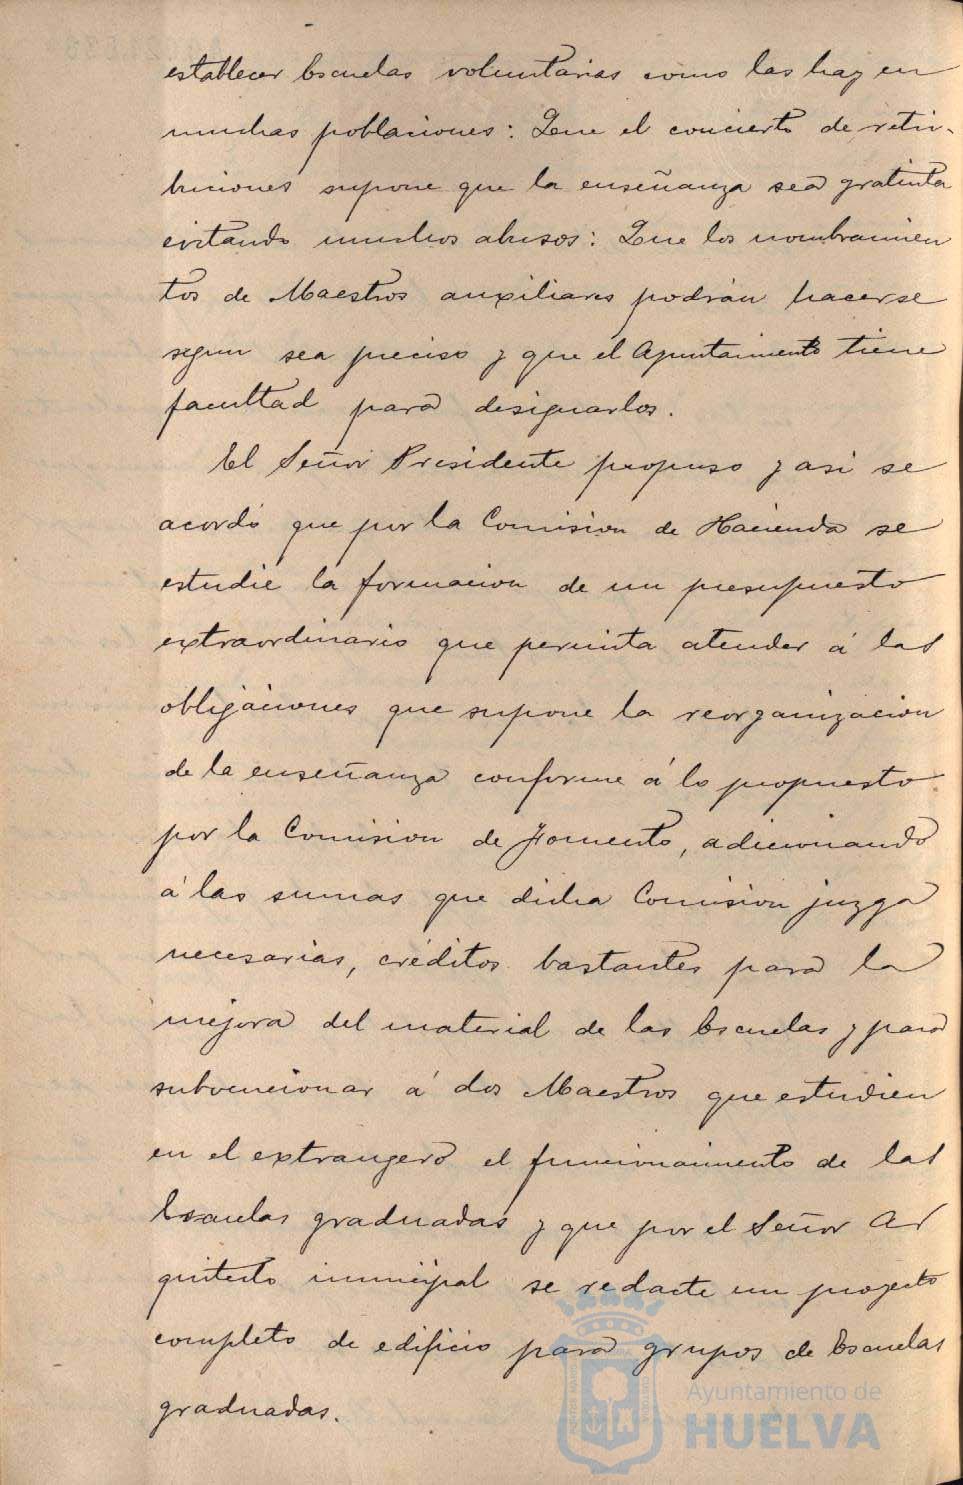 establecer Escuelas voluntarias como las hay en
muchas poblaciones: Que el concierto de retri-
buciones supone que la enseñanza sea gratuita
evitando muchos abusos: Que los nombramien
tos de Maestros auxiliares podrán hacerse
segun sea preciso y que el Ayuntamiento tiene
facultad para designarlos.
El Señor Presidente propuso y asi se
acordó que por la Comision de Hacienda se
estudie la formacion de un presupuesto
extraordinario que permita atender á las
obligaciones que supone la reorganizacion
de la enseñanza conforme á lo propuesto
por la Comision de Fomento, adicionando
á las sumas que dicha Comision juzga
necesarias, créditos bastantes para la
mejora del material de las Escuelas y para
subvencionar á dos Maestros que estudien
en el extrangero el funcionamiento de las
Escuelas graduadas y que por el Señor Ar
quitecto municipal se redacte un proyecto
completo de edificio para grupos de Escuelas
graduadas.
Ayuntamiento de
HUELVA